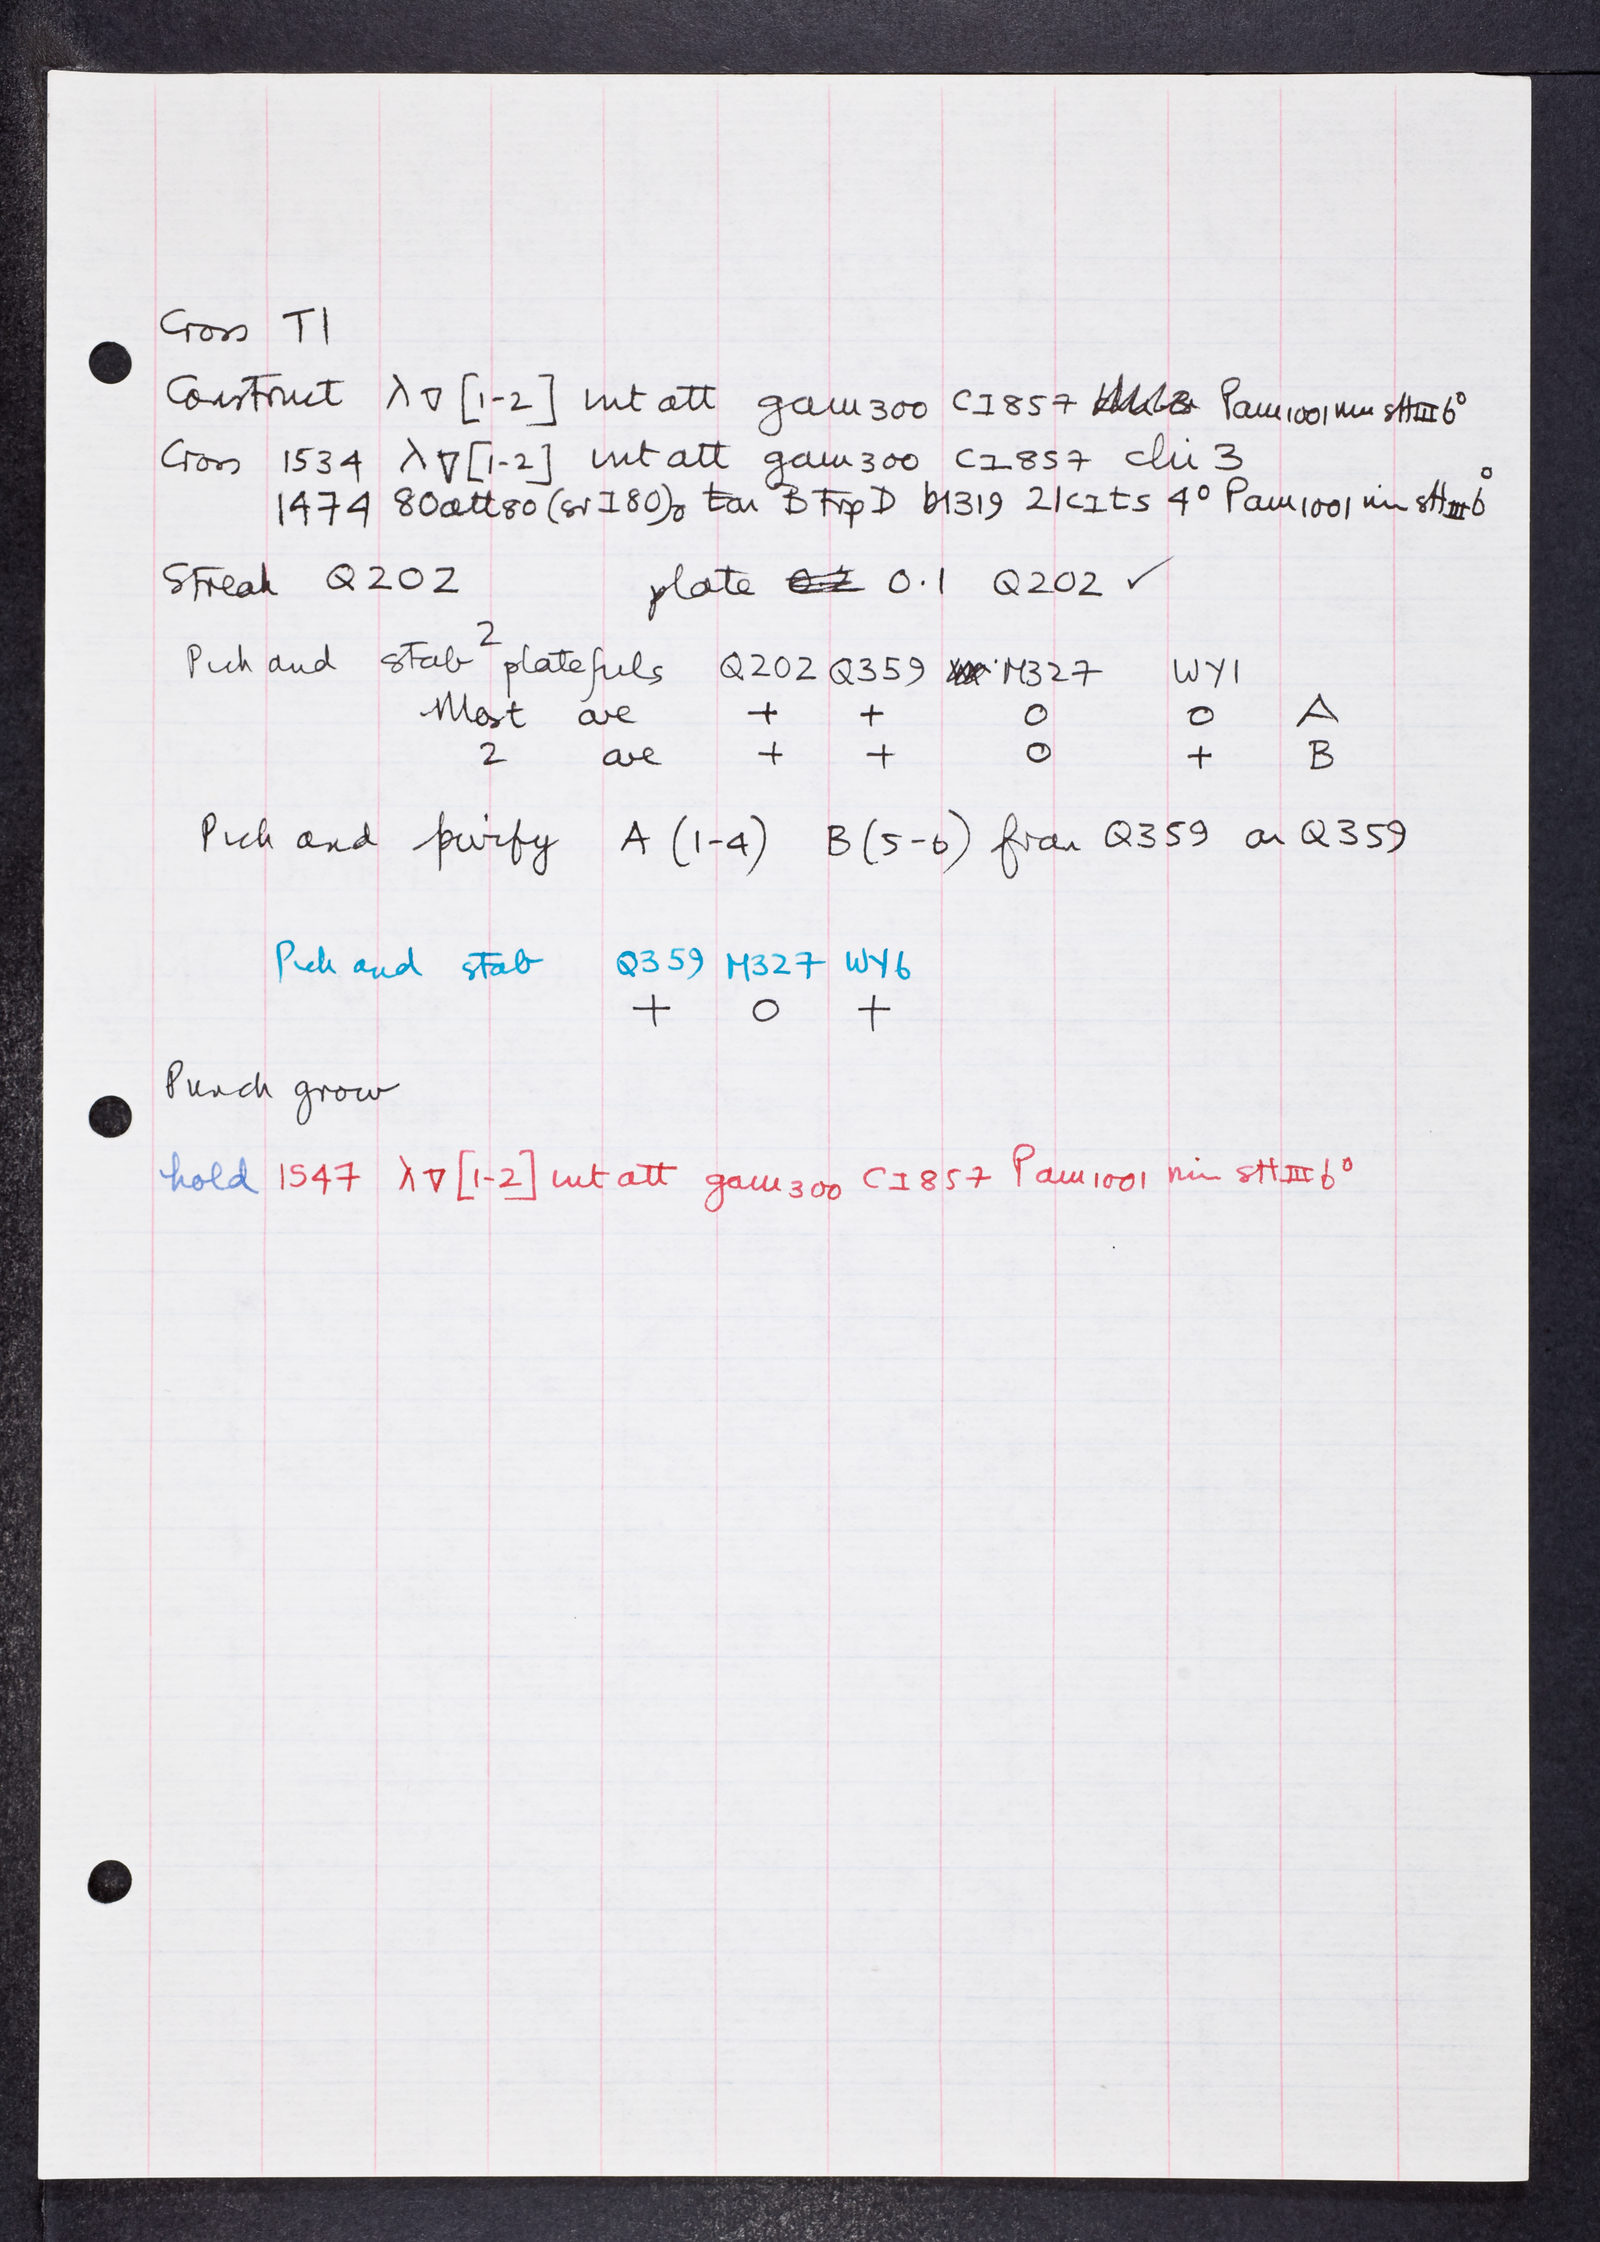 Cross T1
Construct λ∇[1-2] int att gam300 CI857 Pam1001 nin sHIII6°
Cross 1534 λ∇[1-2] int att gam300 CI857 chi 3
1474 80att80 (srI80)° ton B trp D b1319 21cIts 4° Pam1001 nin sHIII6°
Streak Q202 plate 0.1 Q202 ✓
Pick and stab 2 platefuls Q202 Q359 M327 WY1
Most are + + O O A
2 are + + O + B
Pick and purify A (1-4) B (5-6) from Q359 on Q359
Pick and stab Q359 M327 WY6
+ O +
Punch grow
hold 1547 λ∇[1-2] int att gam300 CI857 Pam1001 nin sHIII6°